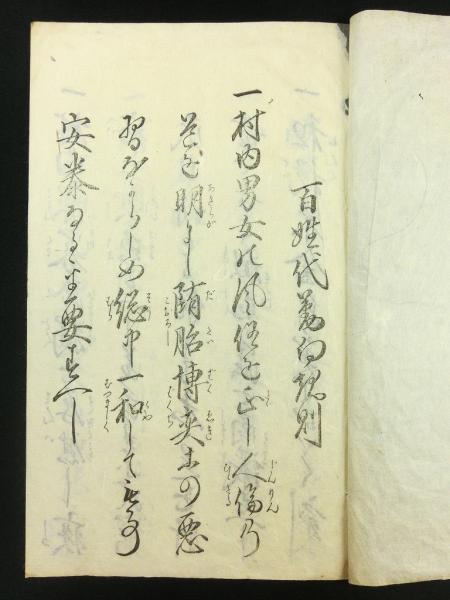 百姓代勤向規則
一村内男女の風俗を正し人倫乃
道を明にし堕胎博奕等の悪
習なからしめ総中一和して無事
安泰なるを要すへし